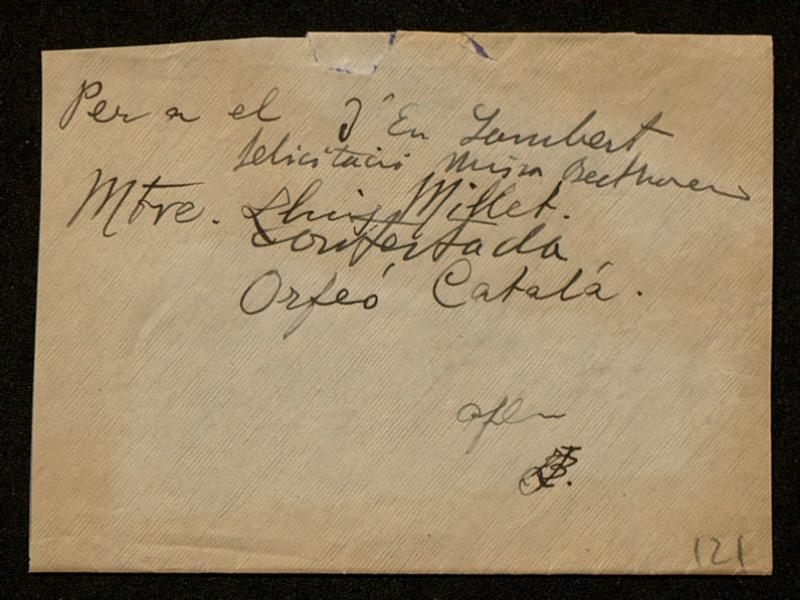 Per a el
D' En Lambert
felicitació Missa Beethoven
Mtre. Lluis Millet.
Contestada
Orfeó Català.
121